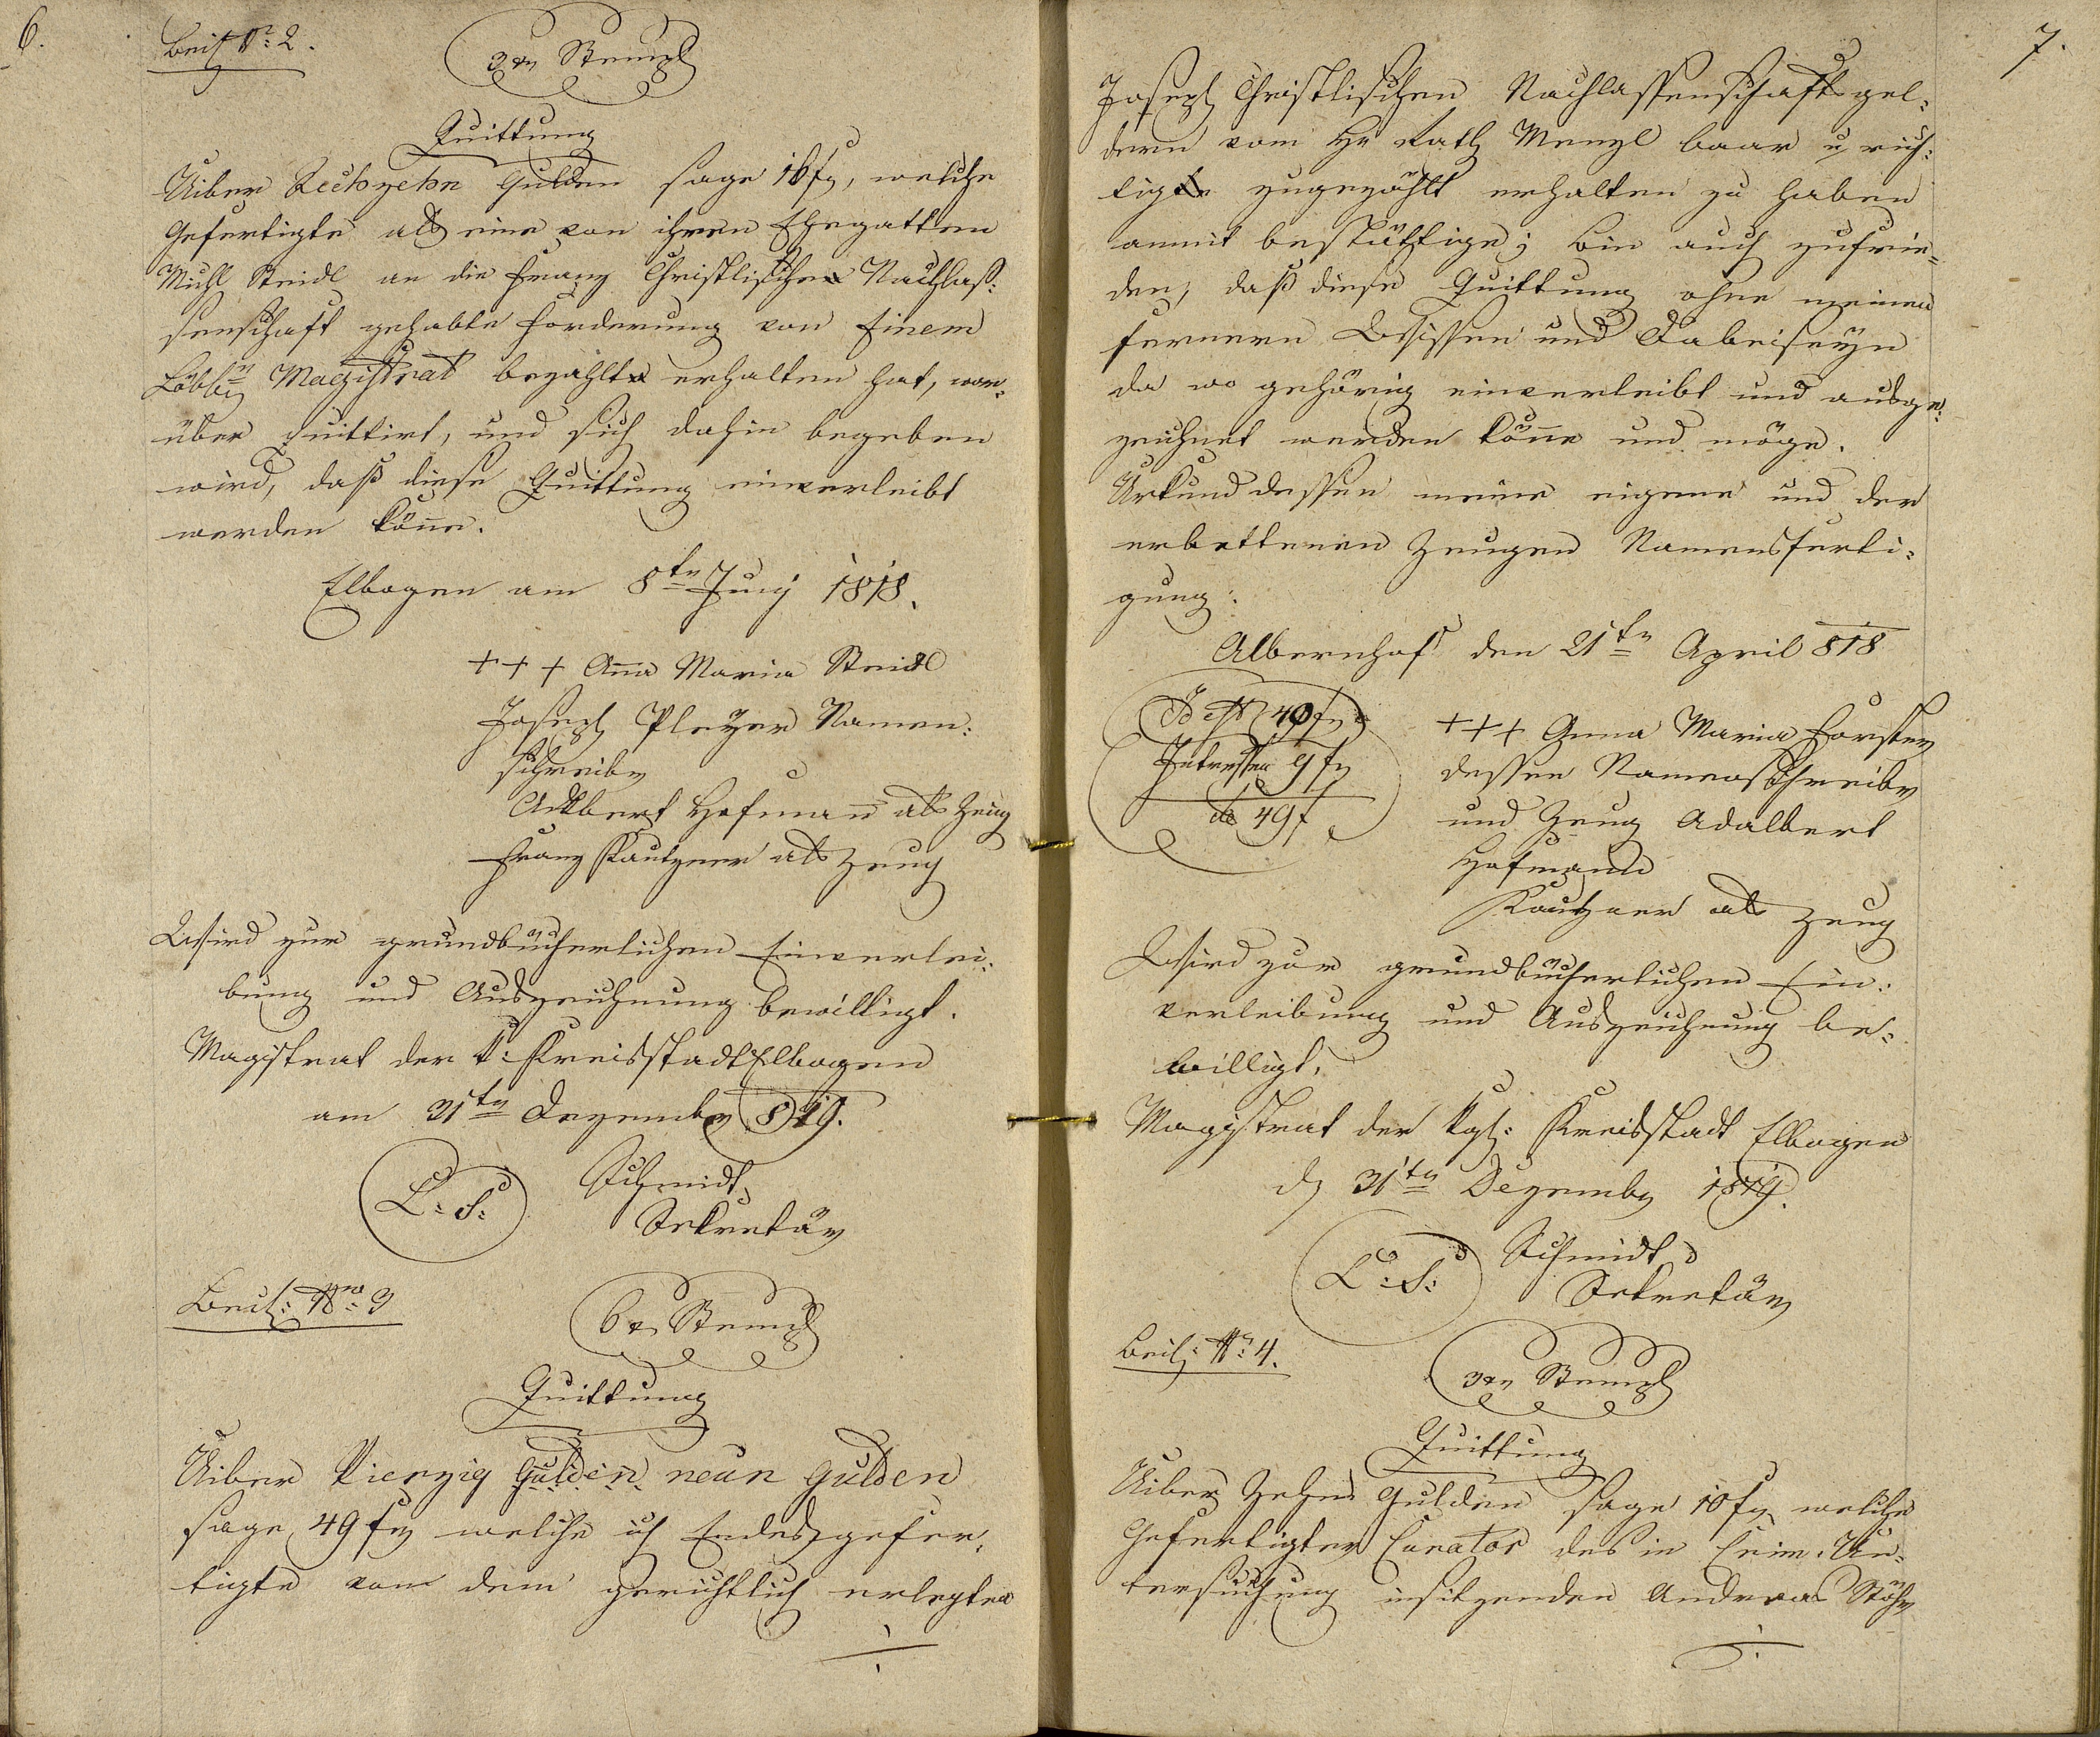 6.
Beil. Nr: 2.
3 xr Stempl
Quittung
Uiber Sechszehn Gulden sage 16 fr, welche
Gefertigte als eine von ihren Ehegatten
Michl Steidl an die Franz Christlischen Nachlaß:
senschaft gehabte Forderung von Einem
Löbln Magistrat bezahlt erhalten hat, wor:
über quittirt, und sich dahin begeben
wird, daß diese Quittung einverleibt
werden köne.
Elbogen am 8ten Juny 1818.
+ + + Ana Maria Steidl
Joseph Pleyer Namen:
schreiber
Adlbert Hofman als Zeug
Franz Kautzner als Zeug
Wird zur grundbücherlichen Einverlei:
bung und Auszeichnung bewilligt.
Magistrat der k: Kreisstadt Elbogen
am 31ten Dezember 819.
L: S:
Schmidt
Sekretär
Beil: Nro: 3
6 xr Stempl
Quittung
Uiber Vierzig Gulden neun Gulden
sage 49 fr welche ich Endesgefer:
tigte von dem gerichtlich erlegten
7.
Joseph Christlischen Nachlassenschaftsgel:
dern vom Hr Rath Menzl baar u rich:
tig zugezählt erhalten zu haben
anmit bestättige; bin auch zufrie:
den, daß diese Quittung ohne meinen
fernern Wissen und Dabeiseyn
da wo gehörig einverleibt und ausge:
zeichnet werden köne und möge.
Urkund dessen meine eigene und der
erbettenen Zeugen Namensferti:
gung.
Albernhof den 21ten April 818
Id est 40 fr
Intressen 9 fr
49 f
+ + + Anna Maria Forster
dessen Namensschreiber
und Zeug Adalbert
Hofmann
Kautzner als Zeug
Wird zur grundbücherlichen Ein:
verleibung und Auszeichnung be:
willigt.
Magistrat der kgl: Kreisstadt Elbogen
d 31ten Dezember 1819.
L: S:
Schmidt
Sekretär
Beil: Nr: 4.
3 xr Stempl
Quittung
Uiber Zehn Gulden sage 10 fr welche
Gefertigter Curator des in Crim. Un:
tersuchung insitzenden Andreas Stöhr